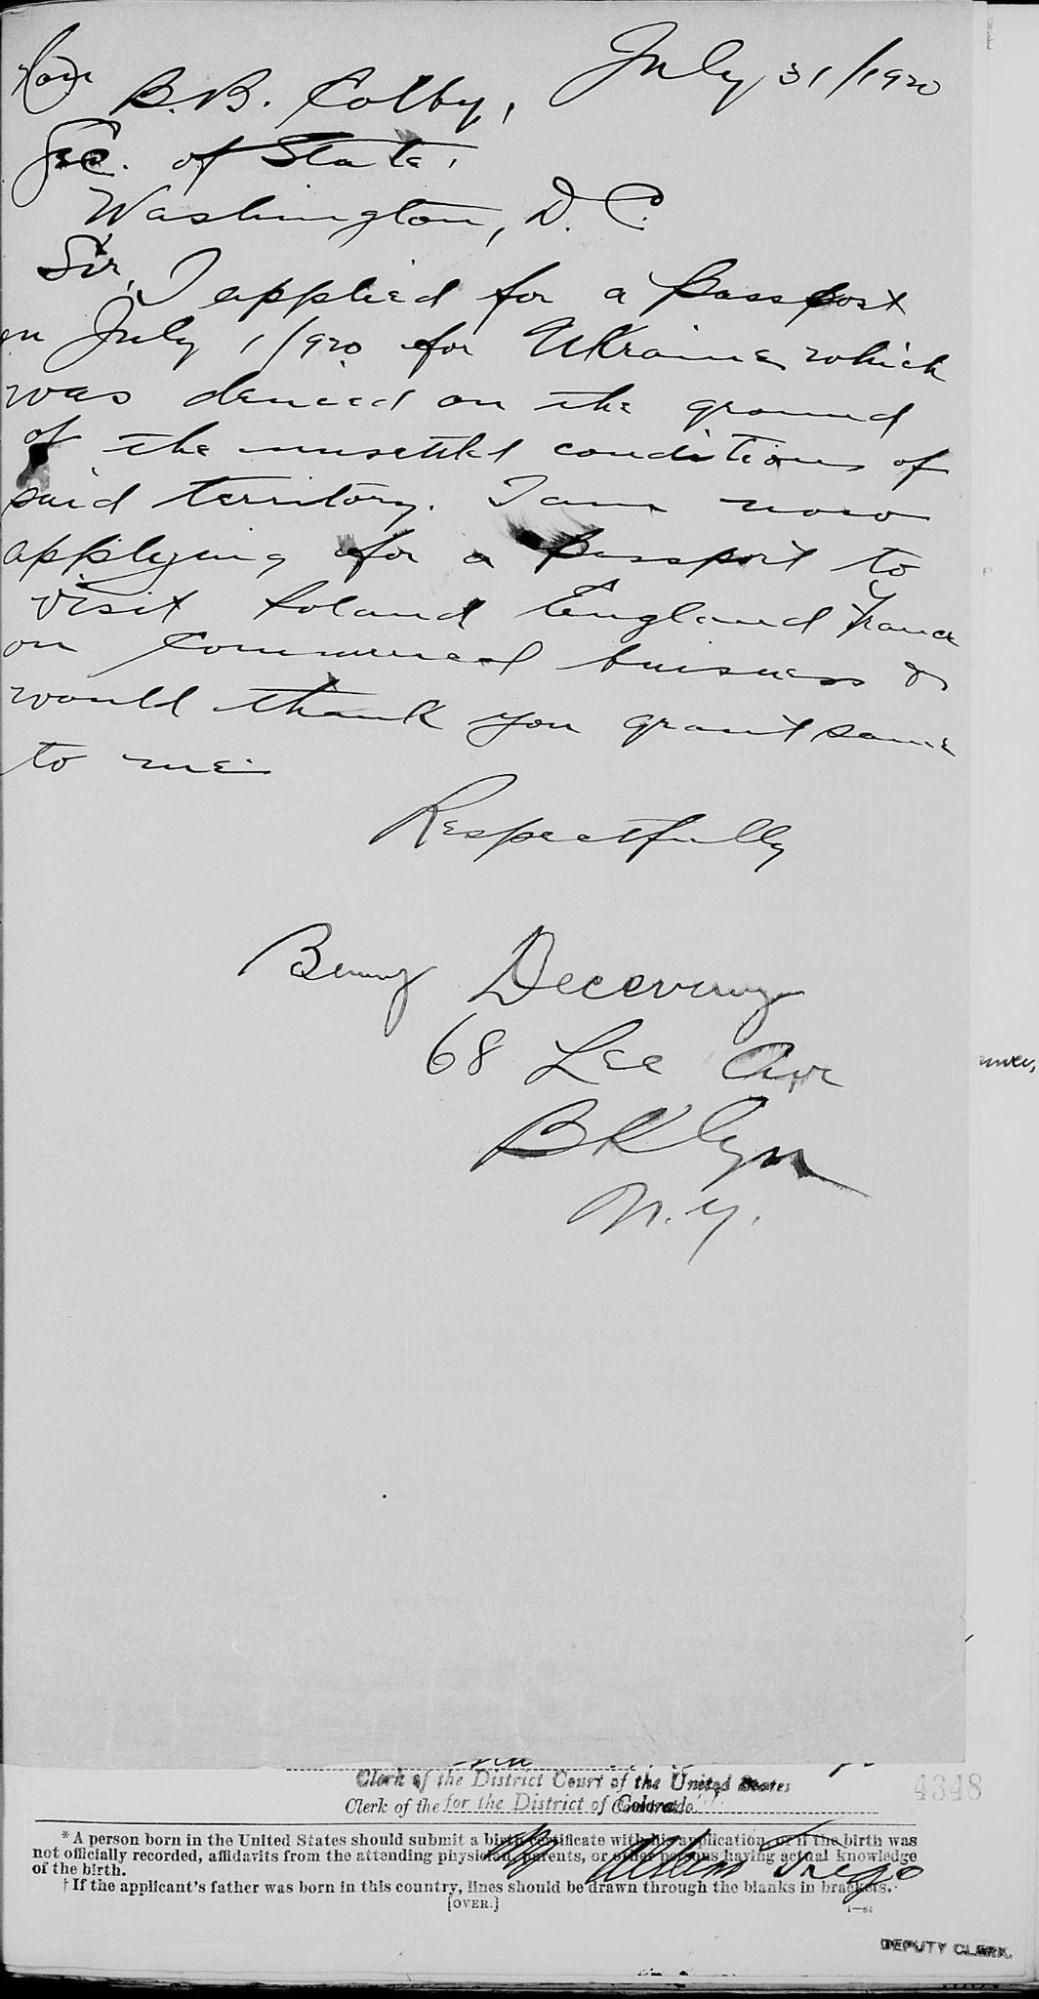 July 31/1920
Hon
B.B. Colby,
Sec. of State,
Washington, D.C.
Sir, I applied for a Passport
on July 1/920 for Ukraine which
was denied on the ground
of the unsettld conditions of
said territory. I am now
applying for a Passport to
visit Poland England France
on Commercal buisness &
would thank you grant same
to me.
Respectfully
Benny
68 Lee Ave
BKlyn
N.Y.
Clerk of the District Court of the United States
Clerk of the for the District of Colorado
4348
* A person born in the United States should submit a birth certificate with his application, or if the birth was
not officially recorded, affidavits from the attending physician, parents, or other persons having actual knowledge
of the birth.
† If the applicant's father was born in this country, lines should be drawn through the blanks in brackets.
[OVER.]
By Trego
DEPUTY CLERK.